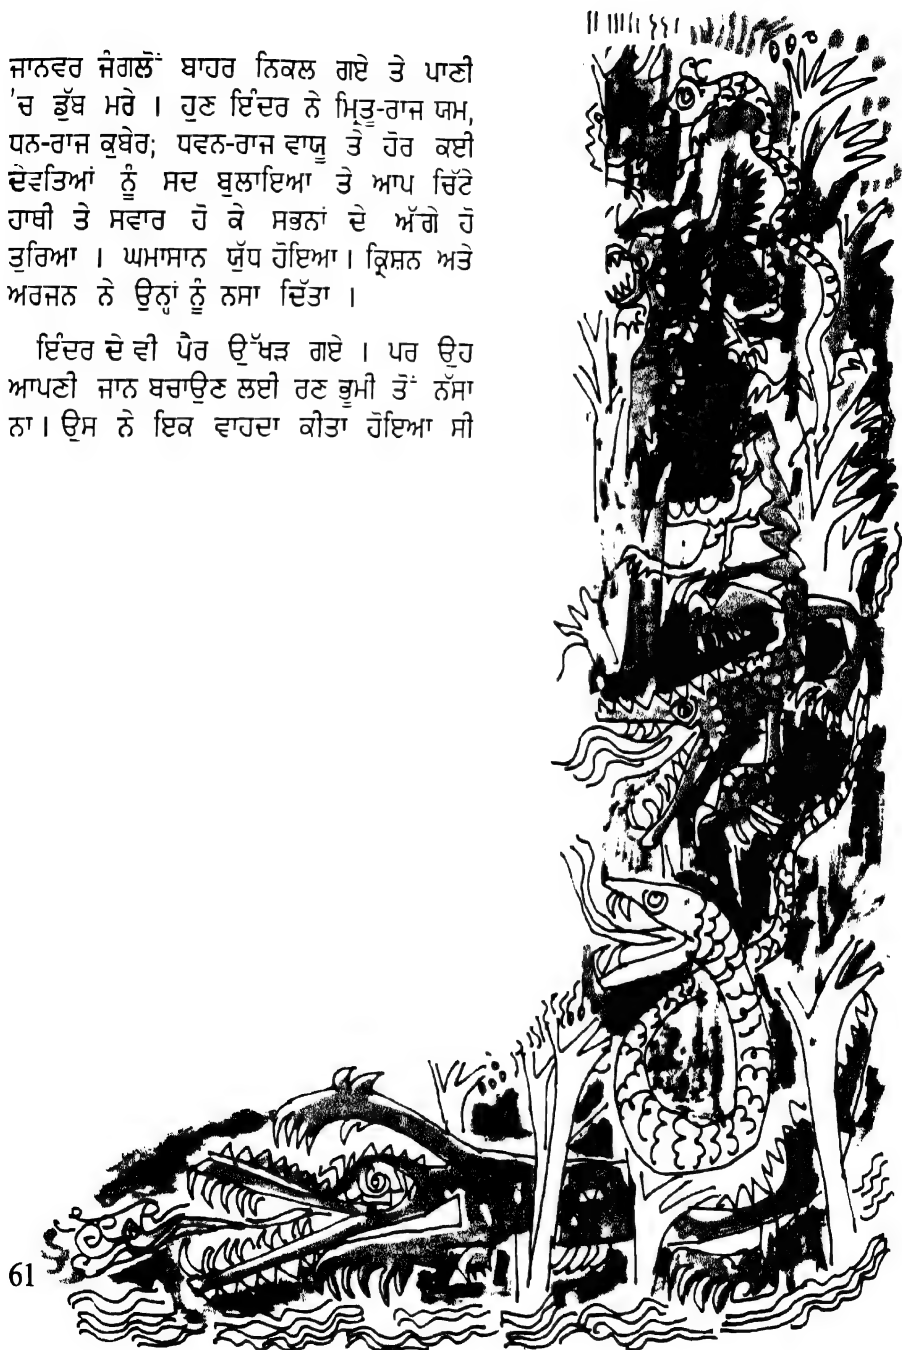 ਜਾਨਵਰ ਜੰਗਲੋਂ ਬਾਹਰ ਨਿਕਲ ਗਏ ਤੇ ਪਾਣੀ
'ਚ ਡੁੱਬ ਮਰੇ । ਹੁਣ ਇੰਦਰ ਨੇ ਮ੍ਰਿਤੂ-ਰਾਜ ਯਮ,
ਧਨ-ਰਾਜ ਕੁਬੇਰ; ਧਵਨ-ਰਾਜ ਵਾਯੂ ਤੇ ਹੋਰ ਕਈ
ਦੇਵਤਿਆਂ ਨੂੰ ਸਦ ਬੁਲਾਇਆ ਤੇ ਆਪ ਚਿੱਟੇ
ਹਾਥੀ ਤੇ ਸਵਾਰ ਹੋ ਕੇ ਸਭਨਾਂ ਦੇ ਅੱਗੇ ਹੋ
ਤੁਰਿਆ । ਘਮਾਸਾਨ ਯੁੱਧ ਹੋਇਆ । ਕ੍ਰਿਸ਼ਨ ਅਤੇ
ਅਰਜਨ ਨੇ ਉਨ੍ਹਾਂ ਨੂੰ ਨਸਾ ਦਿੱਤਾ ।
ਇੰਦਰ ਦੇ ਵੀ ਪੈਰ ਉੱਖੜ ਗਏ । ਪਰ ਉਹ
ਆਪਣੀ ਜਾਨ ਬਚਾਉਣ ਲਈ ਰਣ ਭੂਮੀ ਤੋਂ ਨੱਸਾ
ਨਾ । ਉਸ ਨੇ ਇਕ ਵਾਹਦਾ ਕੀਤਾ ਹੋਇਆ ਸੀ
61